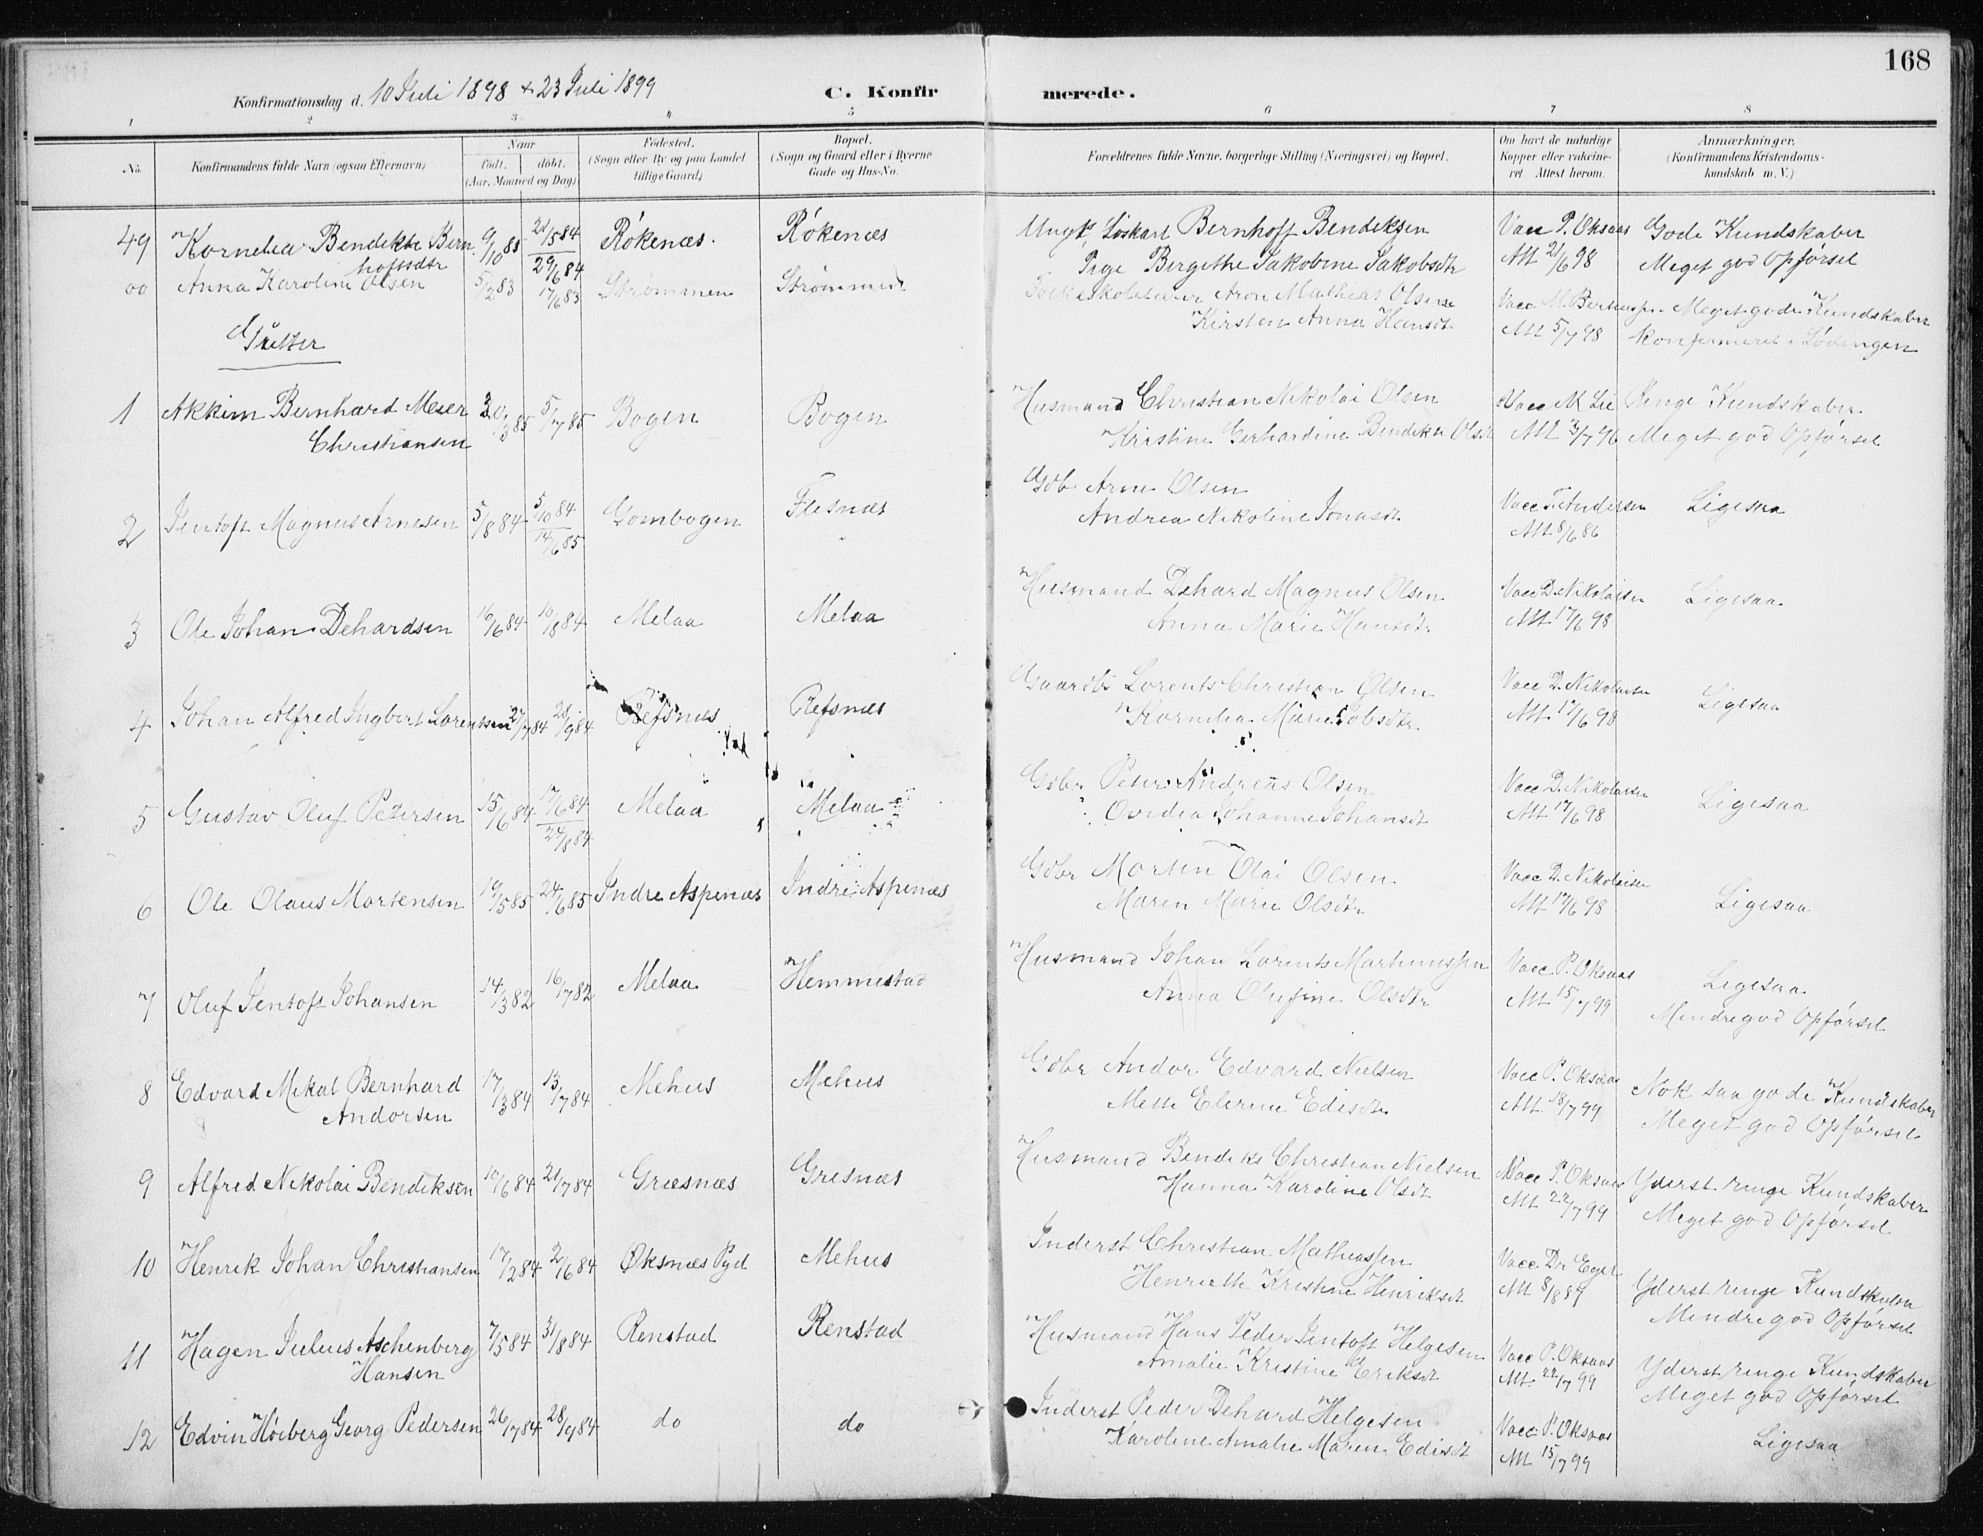 168
Konfirmationsdag d. 10 Juli 1898 + 23 Juli 1899 C. Konfirmerede.
1 2 3 4 5 6 7 8
No. Konfirmandens fulde Navn (ogsaa Efternavn) Naar født. døbt. (Aar, Maaned og Dag) Fødested. (Sogn eller By og paa Landet tillige Gaard) Bopæl. (Sogn og Gaard eller i Byerne Gade og Hus-No. Forældrenes fulde Navne, borgerlige Stilling (Næringsvei) og Bopæl. Om havt de naturlige Kopper eller vakcineret. Attest herom. Anmærkninger, (Konfirmandens Kristendomskundskab m. V.)
49 Kornelia Bendikte Bern 9/10 83 21/5 84 Røkenæs Røkenæs Ungk. Løskarl Bernhoft Bendiksen Vacc P. Oksaas Gode Kundskaber
hoftsdtr 29/6 84 Pige Birgithe Jakobine Jakobsdtr Att 21/6 98 Meget god Opførsel
00 Anna Karoline Olsen 5/2 83 17/6 83 Strømmen Strømmen Folkeskolelærer Aron Mathias Olsen Vacc M. Berteussen Meget gode Kundskaber
Kirsten Anna Hansdt Att 5/7 98 Konfirmeret i Lødingen
Gutter
1 Akkim Bernhard Meier 5/7 85 Bogen Bogen Husmand Christian Nikolai Olsen Vacc N Lie Ringe Kundskaber
Christiansen Kirstine Gerhardine Bendikte Olsdt Meget god Opførsel
2 Jentoft Magnus Arnesen 5/8 84 5/10 84 Gombogen Flesnæs Gdb Arne Olsen Vacc T. Andersen Ligesaa
14/6 85 Andrea Nikoline Jonasdt Att 8/6 86
3 Ole Johan Dehardsen 16/6 84 10/8 84 Melaa Melaa Husmand Dehard Magnus Olsen Vacc D. Nikolaisen Ligesaa
Anna Marie Hansdtr Att 17/6 98
4 Johan Alfred Ingbert Lorentsen 27/7 84 28/9 84 Refsnæs Refsnæs Gaardbr Lorents Christian Olsen Vacc D. Nikolaisen Ligesaa
Kornelia Marie Jobsdtr. Att 17/6 98
5 Gustav Oluf Petersen 15/6 84 17/6 84 Melaa Melaa Gdbr Peter Andreas Olsen Vacc D. Nikolaisen Ligesaa
24/8 84 Ovidia Johanne Johansdt Att 17/6 98
6 Ole Olaus Mortensen 19/5 85 24/6 85 Indre Aspenæs Indre Aspenæs Gdbr Morten Olai Olsen Vacc D. Nikolaisen Ligesaa
Maren Marie Olsdtr Att 17/6 98
7 Oluf Jentoft Johansen 14/3 82 16/7 82 Melaa Hemmestad Husmand Johan Lorents Martinussen Vacc P. Oksaas Ligesaa
Anna Olufine Olsdtr Att 15/7 99 Mindre god Opførsel
8 Edvard Mikal Bernhard 17/3 84 13/7 84 Mehus Mehus Gdbr Andor Edvard Nielsen Vacc P. Oksaas Nok saa gode Kundskaber
Andorsen Mette Elerine Edisdtr Att 18/7 99 Meget god Opførsel
9 Alfred Nikolai Bendiksen 10/6 84 21/7 84 Græsnæs Gresnæs Husmand Bendiks Christian Nielsen Vacc P. Oksaas Yderst ringe Kundskaber
Hanna Karoline Olsdt Att 22/7 99 Meget god Opførsel
10 Henrik Johan Christiansen 17/2 84 Øksnæs Pgd Mehus Inderst Christian Mathiassen Vacc Dr Eger Yderst ringe Kundskaber
Henriette Kristine Henriksdt Att 8/8 89 Mindre god Opførsel
11 Hagen Julius Aschenberg 7/5 84 31/8 84 Renstad Renstad Husmand Hans Peder Jentoft Helgesen Vacc P. Oksaas Yderst ringe Kundskaber
Hansen Amalie Kristine Eriksdt Att 22/7 99 Meget god Opførsel
12 Edvin Høiberg Georg Pedersen 26/7 84 28/9 84 do do Inderst Peder Dehard Helgesen Vacc P. Oksaas Ligesaa
Karoline Amalie Maren Edisdt Att 15/7 99